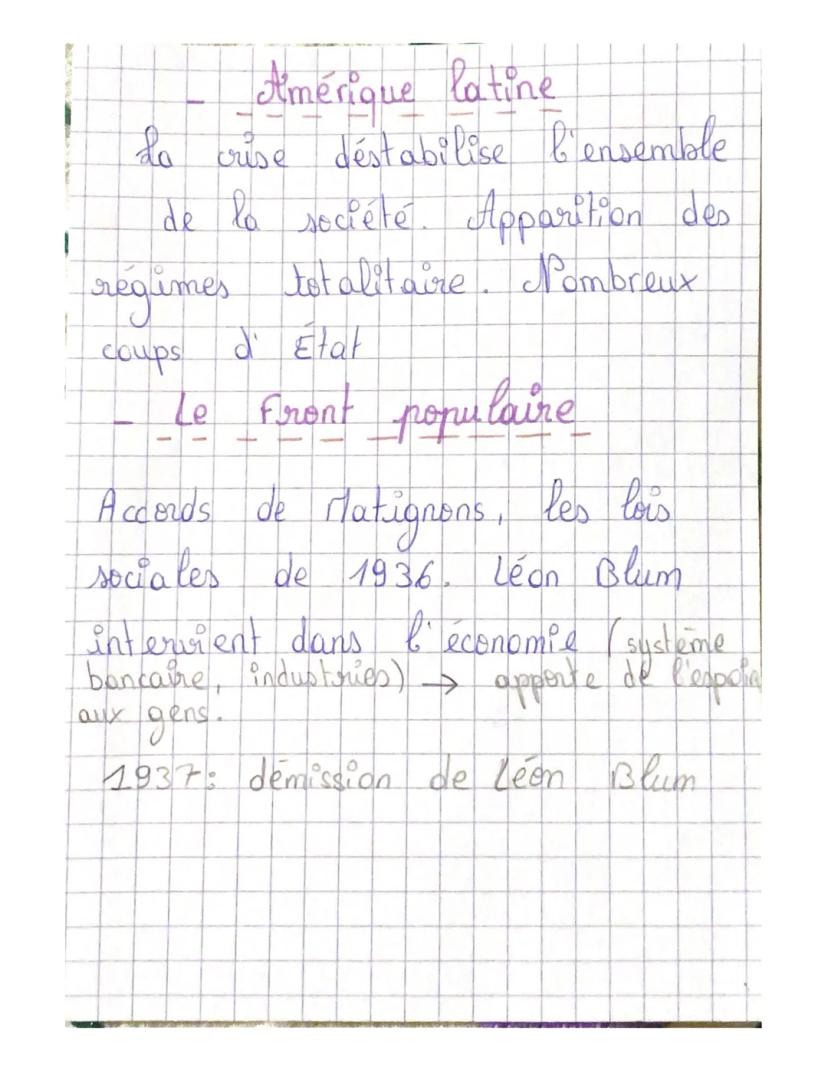 - Amérique latine
La crise déstabilise l'ensemble
de la société. Apparition des
régimes totalitaire. Nombreux
coups d'État
- Le Front populaire
Accords de Matignons, les lois
sociales de 1936. Léon Blum
intervient dans l'économie (système
bancaire, industries) → apporte de l'espoir
aux gens.
1937: démission de Léon Blum